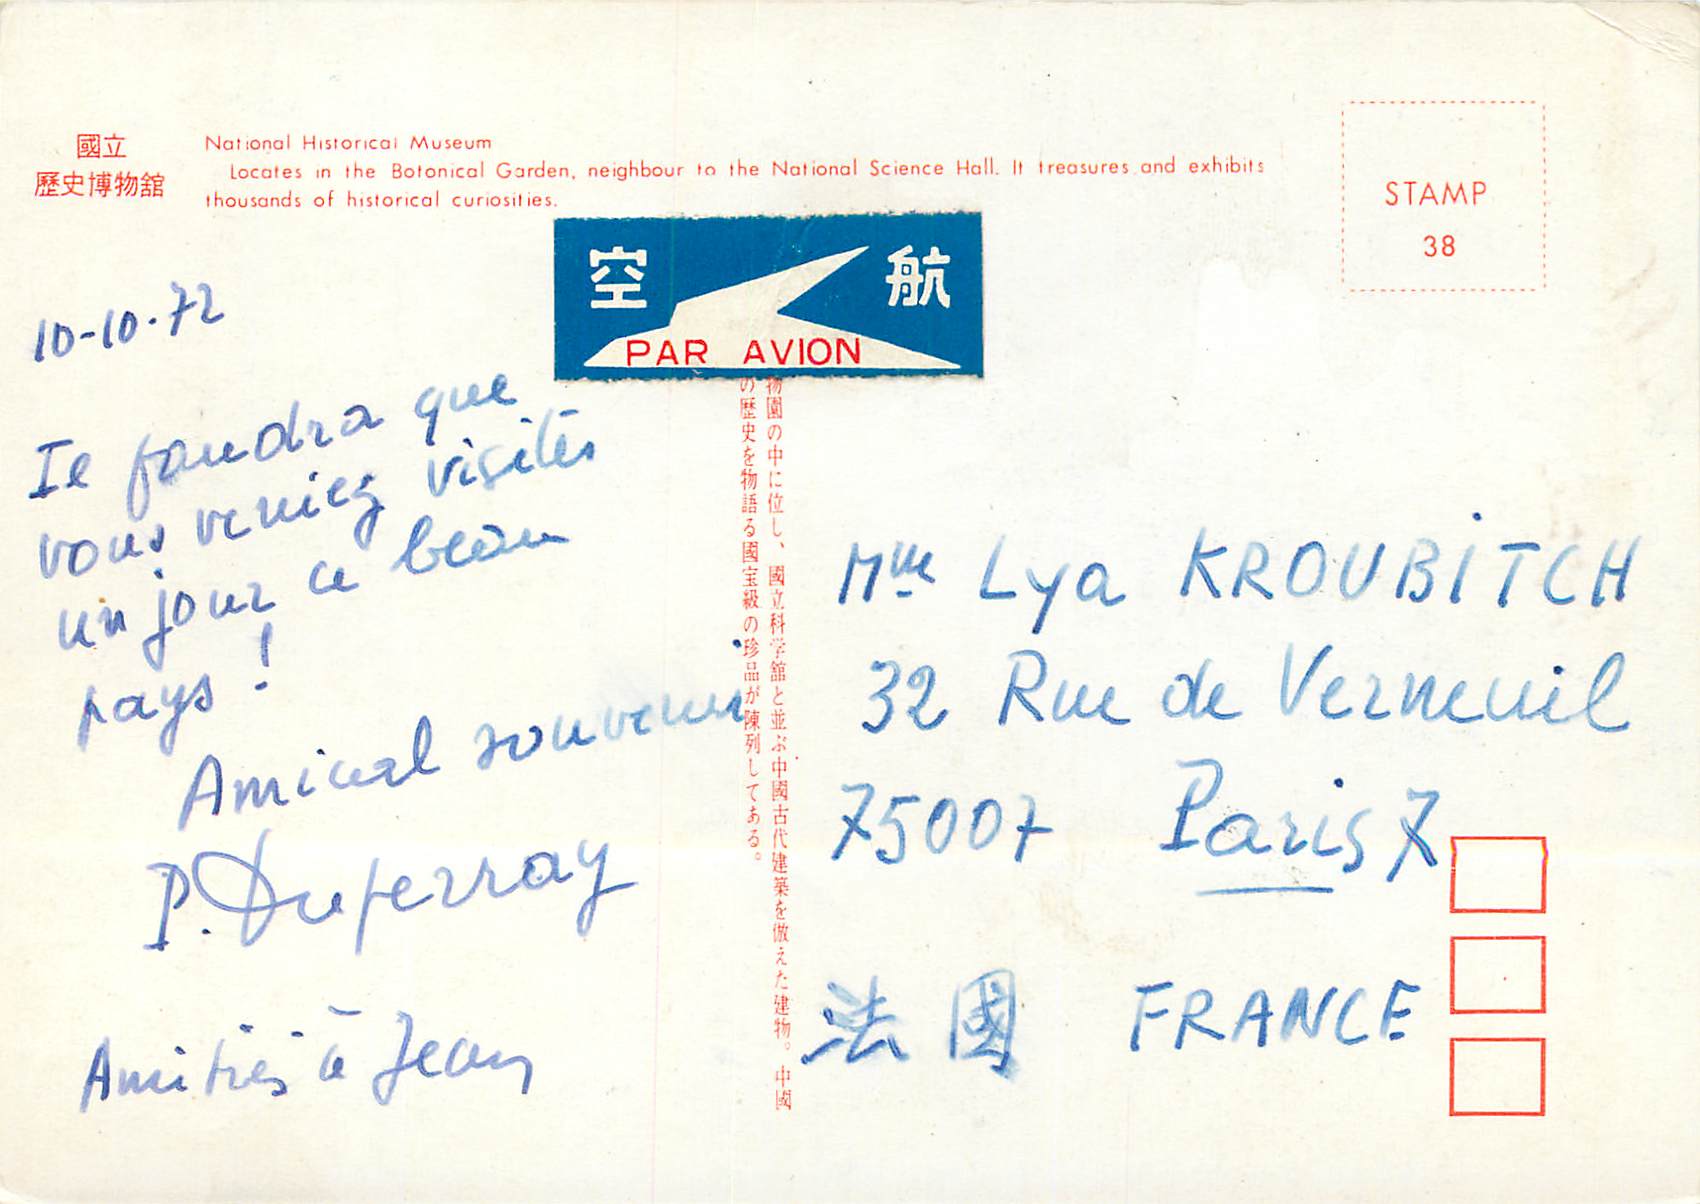 國立
歷史博物舘
National Historical Museum
Locates in the Botonical Garden, neighbour to the National Science Hall. It treasures and exhibits
thousands of historical curiosities.
STAMP
38
空 航
PAR AVION
10-10-72
Il faudra que
vous veniez visiter
un jour ce beau
pays !
Amical souvenir
P. Duferray
Amitiés à Jean
物園の中に位し、國立科学舘と並ぶ中國古代建築を倣えた建物。中國
の歷史を物語る國宝級の珍品が陳列してある。
Mme Lya KROUBITCH
32 Rue de Verneuil
75007 Paris 7
法國 FRANCE